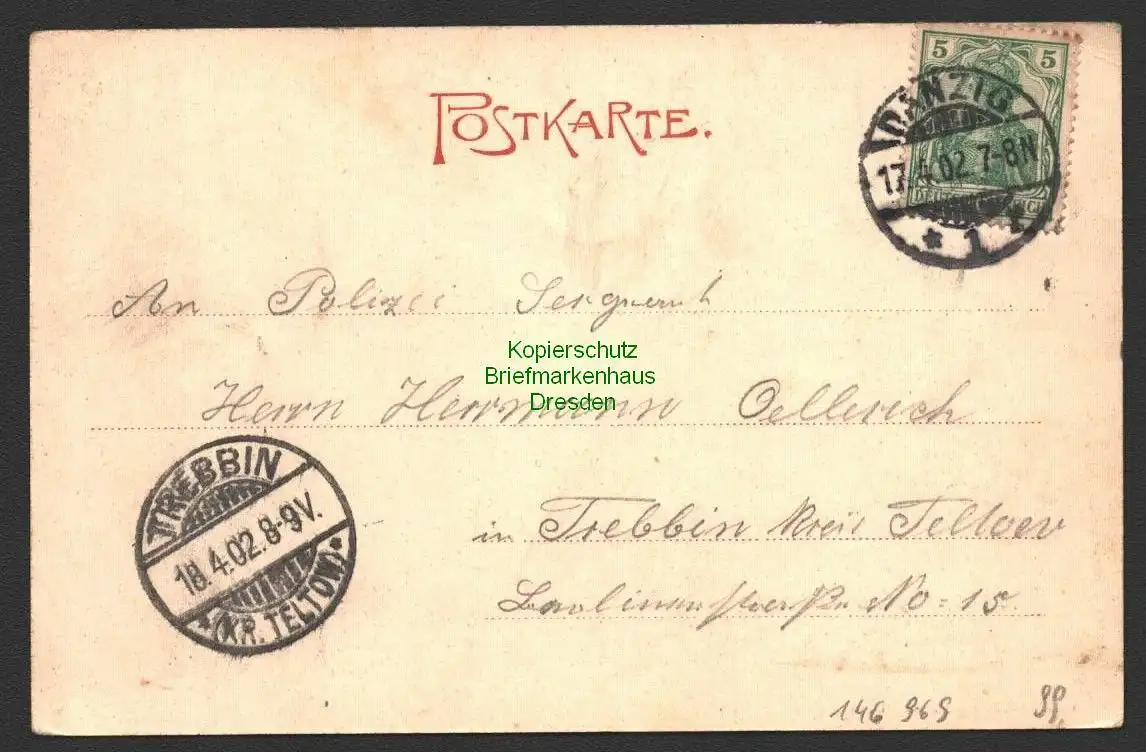 5 5
POSTKARTE.
DANZIG
17.4.02. 7-8N
* 1
An Polizei Sergeant
Kopierschutz
Briefmarkenhaus
Dresden
Herrn Herrmann Oellerich
TREBBIN
18.4.02. 8-9V.
*(KR. TELTOW)*
in Trebbin Kreis Teltow
Berlinerstraße No = 15
146 969
99